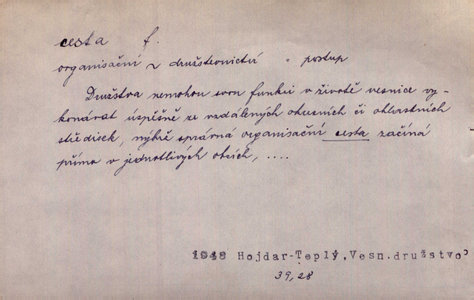 cesta f.
organisační v družstevnictví = postup
Družstva nemohou svou funkci v životě vesnice vy-
konávat úspěšně ze vzdálených okresních či oblastních
středisek, nýbrž správná organisační cesta začíná
přímo v jednotlivých obcích, ....
1948 Hojdar-Teplý, Vesn.družstvo
39,28